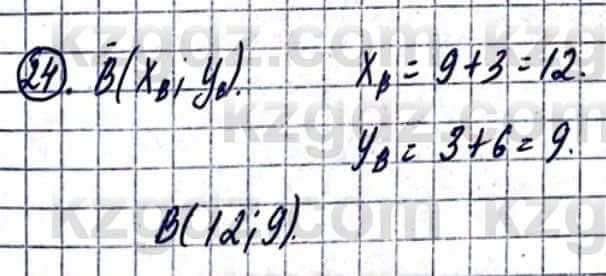 24. B(x_B; y_B). x_B = 9+3=12.
y_B = 3+6=9.
B(12;9).
kzgdz.com